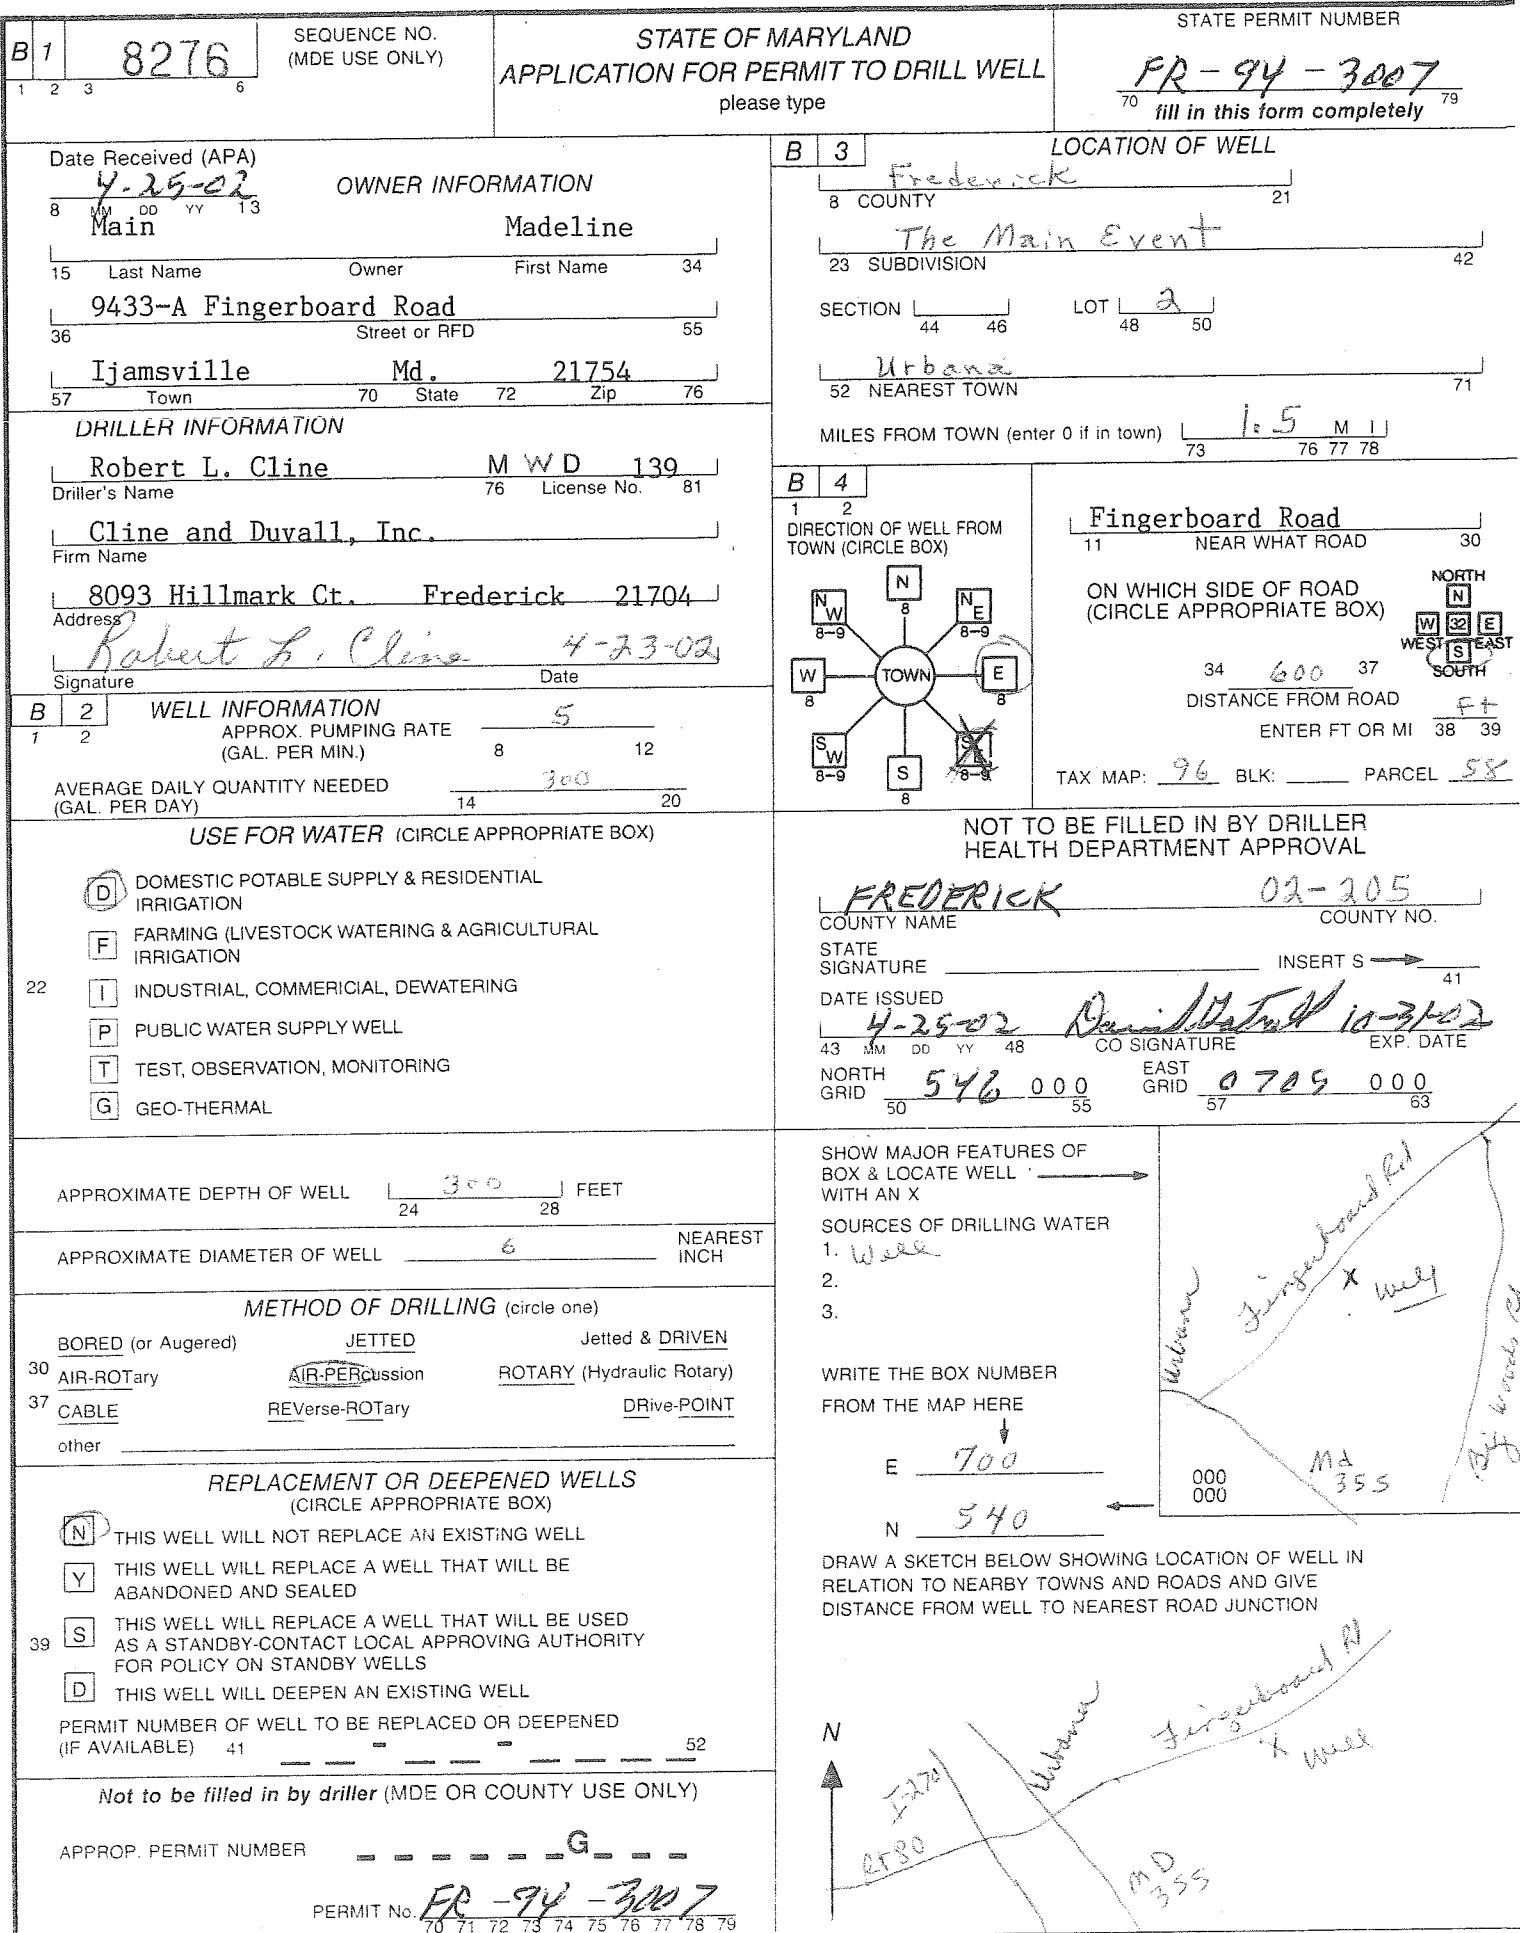 B 1
8276
SEQUENCE NO.
(MDE USE ONLY)
1 2 3 6
STATE OF MARYLAND
APPLICATION FOR PERMIT TO DRILL WELL
please type
STATE PERMIT NUMBER
FR-94-3007
70 79
fill in this form completely
Date Received (APA)
4-25-02
8 MM DD YY 13
OWNER INFORMATION
Main Madeline
15 Last Name Owner First Name 34
9433-A Fingerboard Road
36 Street or RFD 55
Ijamsville Md. 21754
57 Town 70 State 72 Zip 76
DRILLER INFORMATION
Robert L. Cline M W D 139
Driller's Name 76 License No. 81
Cline and Duvall, Inc.
Firm Name
8093 Hillmark Ct. Frederick 21704
Address
Robert L. Cline 4-23-02
Signature Date
B 2
1 2
WELL INFORMATION
APPROX. PUMPING RATE 5
(GAL. PER MIN.) 8 12
AVERAGE DAILY QUANTITY NEEDED 300
(GAL. PER DAY) 14 20
USE FOR WATER (CIRCLE APPROPRIATE BOX)
D DOMESTIC POTABLE SUPPLY & RESIDENTIAL
IRRIGATION
F FARMING (LIVESTOCK WATERING & AGRICULTURAL
IRRIGATION
22 I INDUSTRIAL, COMMERICIAL, DEWATERING
P PUBLIC WATER SUPPLY WELL
T TEST, OBSERVATION, MONITORING
G GEO-THERMAL
APPROXIMATE DEPTH OF WELL 300 FEET
24 28
APPROXIMATE DIAMETER OF WELL 6 NEAREST
INCH
METHOD OF DRILLING (circle one)
BORED (or Augered) JETTED Jetted & DRIVEN
30 AIR-ROTary AIR-PERcussion ROTARY (Hydraulic Rotary)
37 CABLE REVerse-ROTary DRive-POINT
other
REPLACEMENT OR DEEPENED WELLS
(CIRCLE APPROPRIATE BOX)
N THIS WELL WILL NOT REPLACE AN EXISTING WELL
Y THIS WELL WILL REPLACE A WELL THAT WILL BE
ABANDONED AND SEALED
39 S THIS WELL WILL REPLACE A WELL THAT WILL BE USED
AS A STANDBY-CONTACT LOCAL APPROVING AUTHORITY
FOR POLICY ON STANDBY WELLS
D THIS WELL WILL DEEPEN AN EXISTING WELL
PERMIT NUMBER OF WELL TO BE REPLACED OR DEEPENED
(IF AVAILABLE) 41 - - 52
Not to be filled in by driller (MDE OR COUNTY USE ONLY)
APPROP. PERMIT NUMBER G
PERMIT No. FR-94-3007
70 71 72 73 74 75 76 77 78 79
B 3
LOCATION OF WELL
Frederick
8 COUNTY 21
The Main Event
23 SUBDIVISION 42
SECTION LOT 2
44 46 48 50
Urbana
52 NEAREST TOWN 71
MILES FROM TOWN (enter 0 if in town) 1.5 M I
73 76 77 78
B 4
1 2
DIRECTION OF WELL FROM
TOWN (CIRCLE BOX)
N
8
NW
8-9
NE
8-9
W
8
TOWN
E
8
SW
8-9
S
8
SE
8-9
Fingerboard Road
11 NEAR WHAT ROAD 30
ON WHICH SIDE OF ROAD
(CIRCLE APPROPRIATE BOX)
NORTH
N
W 32 E
WEST S EAST
SOUTH
34 600 37
DISTANCE FROM ROAD
ENTER FT OR MI Ft
38 39
TAX MAP: 96 BLK: PARCEL 58
NOT TO BE FILLED IN BY DRILLER
HEALTH DEPARTMENT APPROVAL
FREDERICK 02-205
COUNTY NAME COUNTY NO.
STATE
SIGNATURE INSERT S
41
DATE ISSUED
4-25-02 10-31-02
43 MM DD YY 48 CO SIGNATURE EXP. DATE
NORTH
GRID 546 000
50 55
EAST
GRID 0705 000
57 63
SHOW MAJOR FEATURES OF
BOX & LOCATE WELL
WITH AN X
SOURCES OF DRILLING WATER
1. Well
2.
3.
WRITE THE BOX NUMBER
FROM THE MAP HERE
E 700
N 540
Fingerboard Rd
Urbana
X Well
Md
355
Big Woods Rd
000
000
DRAW A SKETCH BELOW SHOWING LOCATION OF WELL IN
RELATION TO NEARBY TOWNS AND ROADS AND GIVE
DISTANCE FROM WELL TO NEAREST ROAD JUNCTION
N
I-270
Urbana
Fingerboard Rd
X Well
RT80
MD
355